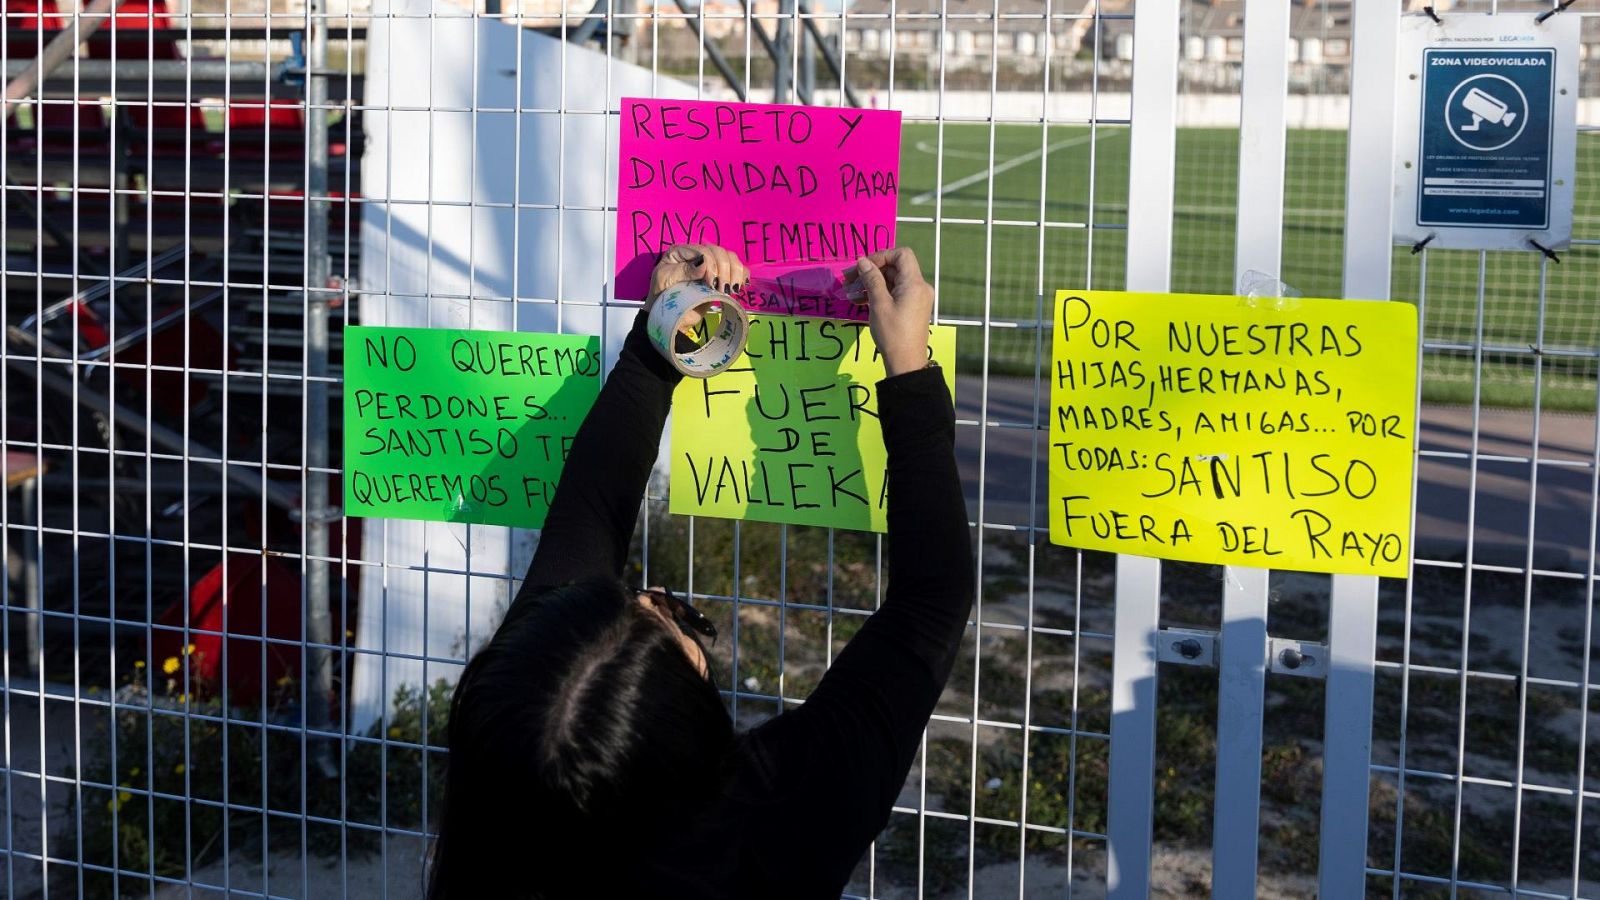 RESPETO Y
DIGNIDAD PARA
RAYO FEMENINO
VETE YA
NO QUEREMOS
PERDONES...
SANTISO TE
QUEREMOS
FUERA
DE
VALLEKA
POR NUESTRAS
HIJAS, HERMANAS,
MADRES, AMIGAS... POR
TODAS: SANTISO
FUERA DEL RAYO
CARTEL FACILITADO POR LEGADATA
ZONA VIDEOVIGILADA
www.legadata.com